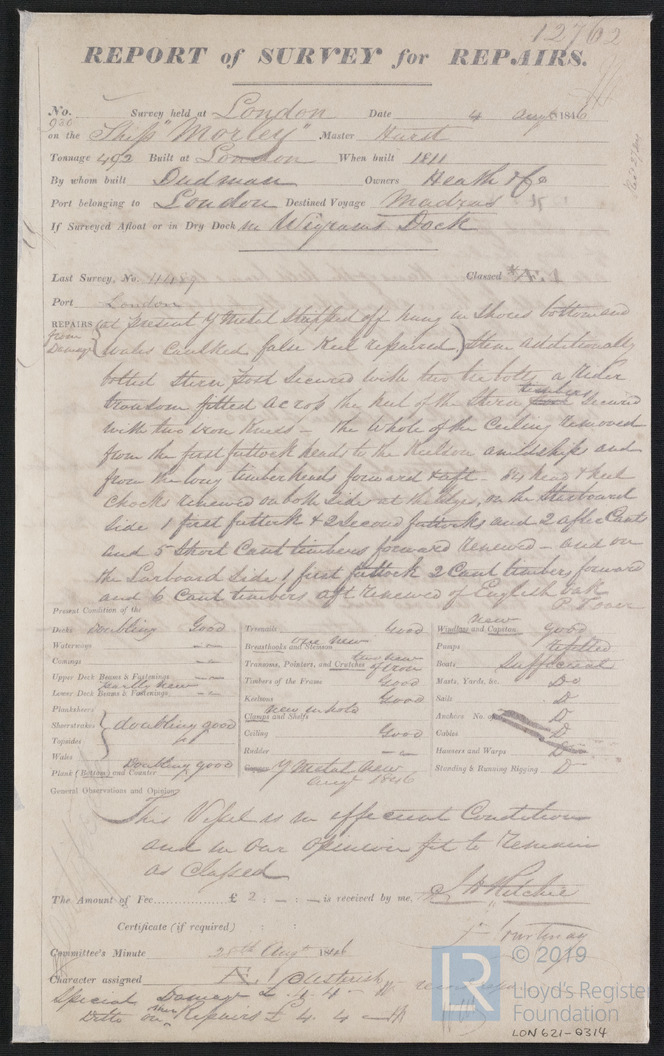 12762
REPORT of SURVEY for REPAIRS.
No. 930 Survey held at London Date 4 Augt 1846
on the Ship "Morley" Master Hurst
Tonnage 492 Built at London When built 1811
By whom built Dudman Owners Heath & Co
Port belonging to London Destined Voyage Madras
If Surveyed Afloat or in Dry Dock in Wigrams Dock
Last Survey, No. Classed *Æ.1
Port London
REPAIRS at present Y Metal stripped off hung in Shores bottom and
from Damage wales Caulked false Keel repaired) Stem additionally
bolted Stern post Secured with two bolts, a
transom fitted across the heel of the Stern timbers Secured
with two iron Knees - the whole of the Ceiling removed
from the first futtock heads to the Keelson amidships and
from the long timberheads forward & aft - head & heel
Chocks renewed on both Sides at the Bilges, on the Starboard
Side 1 first futtock & 2 second futtocks and 2 after Cants
and 5 Short Cant timbers forward renewed - and on
the Larboard Side 1 first futtock 2 Cant timbers forward
and 6 Cant timbers aft renewed of English oak
P. T. over
Present Condition of the
Decks doubling Good
Waterways
Comings
Upper Deck Beams & Fastenings
partly new
Lower Deck Beams & Fastenings
Planksheers
Sheerstrakes doubling good
Topsides
Wales
Plank (Bottom) and Counter Doubling good
Treenails Good
Breasthooks and Stemson one new
Transoms, Pointers, and Crutches two new of Iron
Timbers of the Frame Good
Keelsons Good
Clamps and Shelfs new in hold
Ceiling Good
Rudder
Y Metal New
Augt 1846
new
Windlass and Capstan good
Pumps refitted
Boats Sufficient
Masts, Yards, &c. Do
Sails D
Anchors No. of D
Cables D
Hawsers and Warps D
Standing & Running Rigging D
General Observations and Opinion
This Vessel is in efficient Condition
and in our opinion fit to remain
as Classed
The Amount of Fee £ 2 : - : - is received by me, J H Ritchie
Certificate (if required) : :
J. Courtenay
Committee's Minute 25th Augt 1846
Character assigned Æ.1 Asterisk
Special Damage £ 4. 4 -
Ditto on Repairs £ 4. 4 -
LR
© 2019
Lloyd's Register
Foundation
LON 621-0314